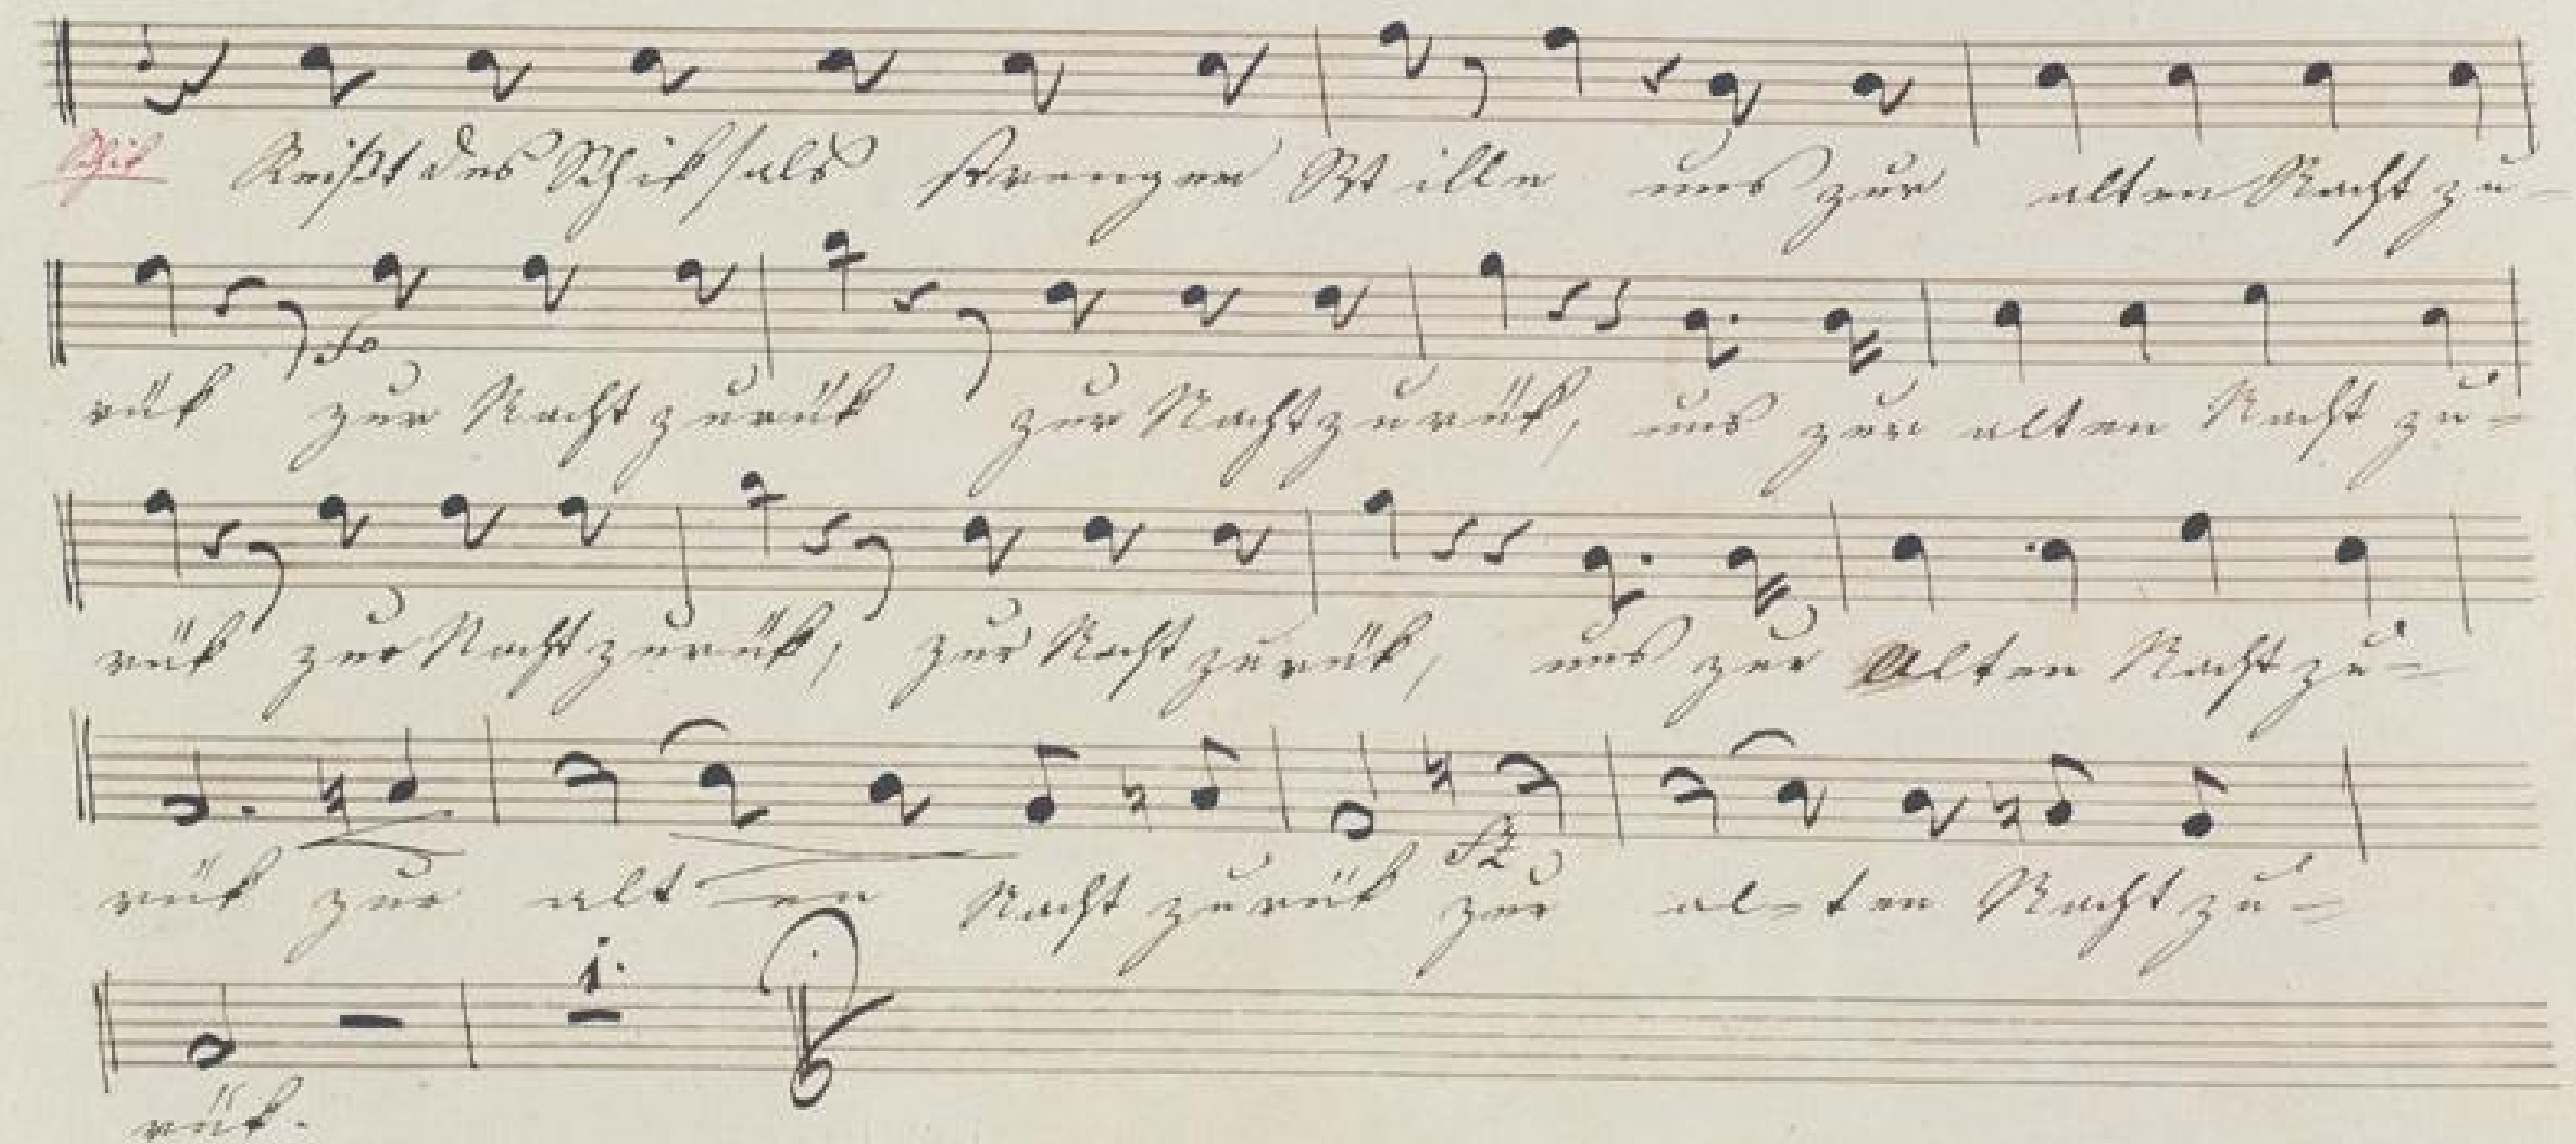 Schik Reißt des Schiksals strenger Wille uns zur alten Nacht zu-
fo
rük zur Nacht zurük zur Nacht zurük, uns zur alten Nacht zu=
rük zur Nacht zurük, zur Nacht zurük, uns zur Alten Nacht zu=
fz
rük zur alt-en Nacht zurük zur al=ten Nacht zu=
1.
rük.